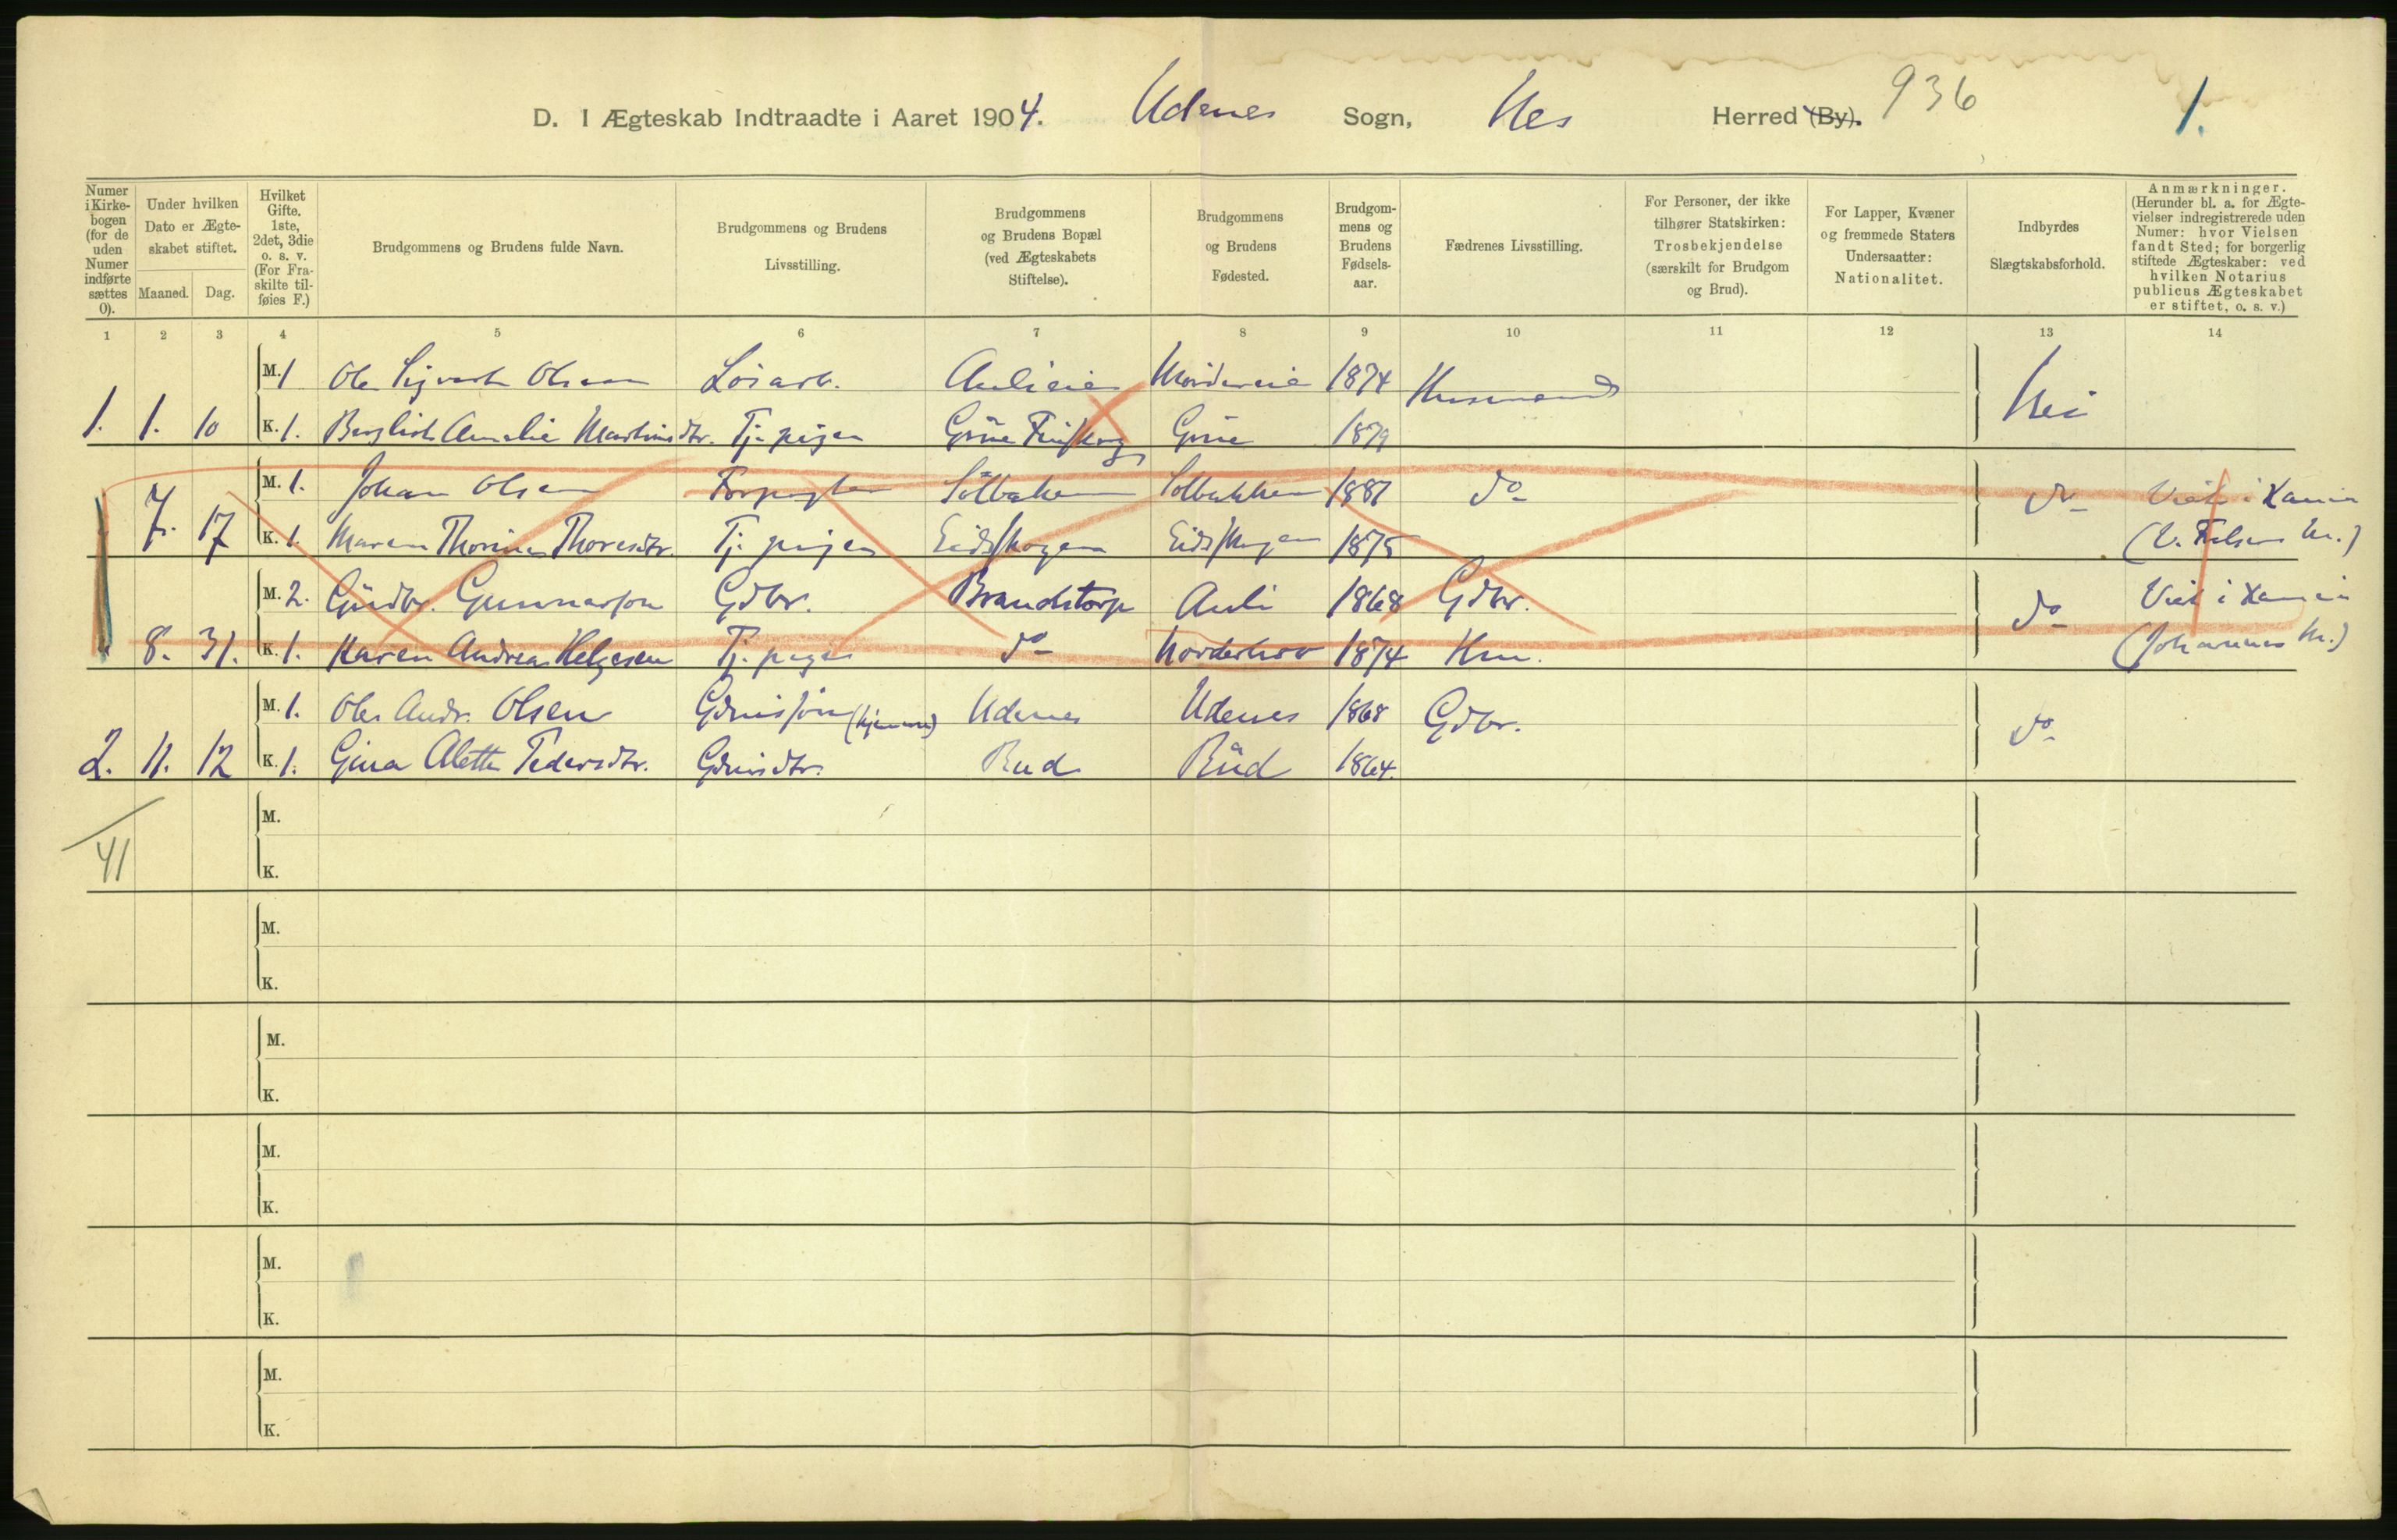 D. I Ægteskab Indtraadte i Aaret 1904. Udenes Sogn, Nes Herred (By). 936 1.
Numer i Kirke-bogen (for de uden Numer indførte sættes 0).
Under hvilken Dato er Ægte-skabet stiftet.
Maaned. Dag.
Hvilket Gifte. 1ste, 2det, 3die o. s. v. (For Fra-skilte til-føies F.)
Brudgommens og Brudens fulde Navn.
Brudgommens og Brudens Livsstilling.
Brudgommens og Brudens Bopæl (ved Ægteskabets Stiftelse).
Brudgommens og Brudens Fødested.
Brudgom-mens og Brudens Fødsels-aar.
Fædrenes Livsstilling.
For Personer, der ikke tilhører Statskirken: Trosbekjendelse (særskilt for Brudgom og Brud).
For Lapper, Kvæner og fremmede Staters Undersaatter: Nationalitet.
Indbyrdes Slægtskabsforhold.
Anmærkninger. (Herunder bl. a. for Ægte-vielser indregistrerede uden Numer: hvor Vielsen fandt Sted; for borgerlig stiftede Ægteskaber: ved hvilken Notarius publicus Ægteskabet er stiftet, o. s. v.)
1 2 3 4 5 6 7 8 9 10 11 12 13 14
M. 1 Ole Sigvart Olsen Løsarb. Aulieie 1874 Husmænd Nei
1. 1. 10 K. 1. Amalie Martinsdtr. Tj. pigen Grue Finskog Grue 1879
M. 1. Johan Olsen Forpagter Solbakken Solbakken 1887 do do Viet i Xania
7. 17 K. 1. Maren Thorine Thoresdtr. Tj. pigen Eidskogen Eidskogen 1875
M. 2. Gudbr. Gunnarson Gdbr. Brandstorp Auli 1868 Gdbr. do Viet i Xania
8. 31. K. 1. Karen Andrea Helgesen Tj. pigen do Norderhov 1874 Hm. (Johannes M.)
M. 1. Ole Andr. Olsen Gdmssøn (hjemme) Udenes Udenes 1868 Gdbr. do
2. 11. 12 K. 1. Gina Alette Pedersdtr. Gdmsdtr. Rud Rud 1864.
M.
41 K.
M.
K.
M.
K.
M.
K.
M.
K.
M.
K.